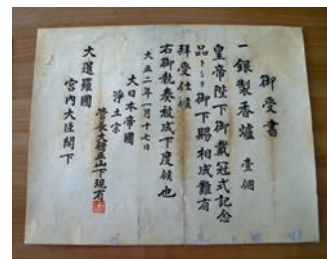 御受書
一銀製香爐 壹個
皇帝陛下御戴冠式記念
品トシテ御下賜相成難有
拜受仕候
右御執奏被成下度候也
大正二年一月十七日
大日本帝國
淨土宗
管長大僧正山下現有
大暹羅國
宮内大臣閣下